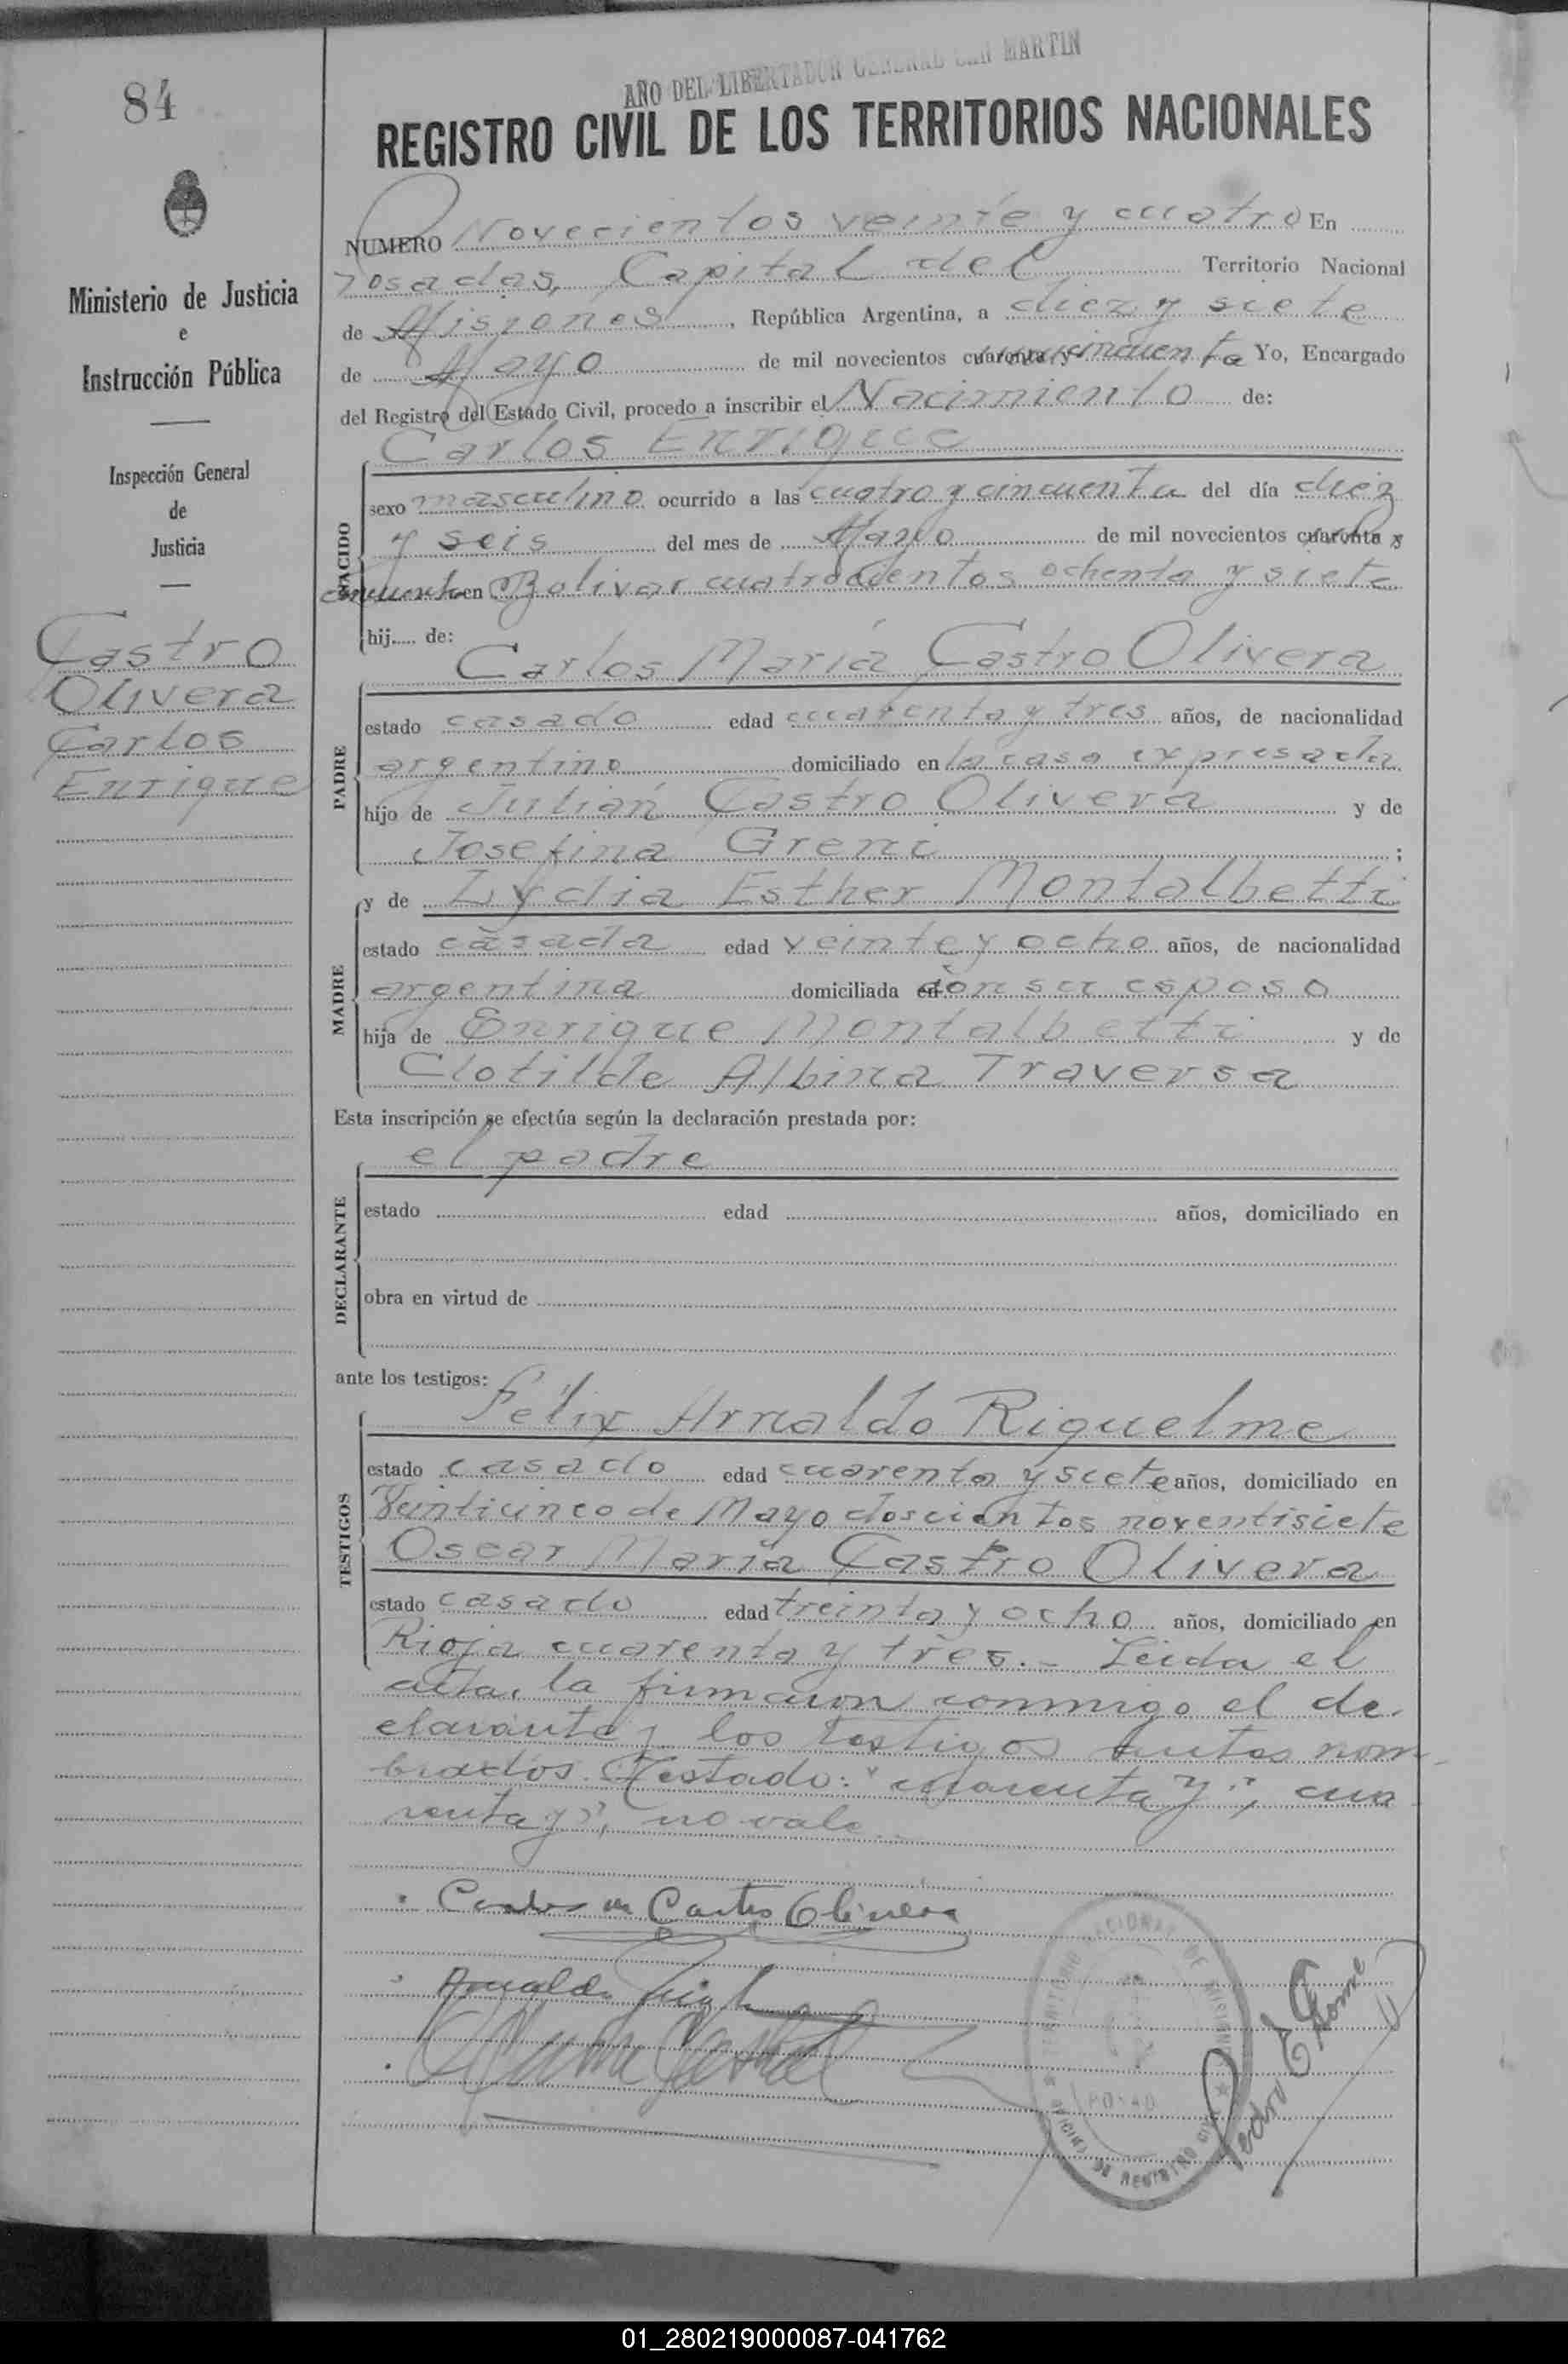 84
AÑO DEL LIBERTADOR GENERAL SAN MARTIN
REGISTRO CIVIL DE LOS TERRITORIOS NACIONALES
Ministerio de Justicia
e
Instrucción Pública
Inspección General
de
Justicia
Castro
Olivera
Carlos
Enrique
NUMERO Novecientos veinte y cuatro En
Posadas, Capital del Territorio Nacional
de Misiones, República Argentina, a diez y siete
de Mayo de mil novecientos cuarenta y cincuenta Yo, Encargado
del Registro del Estado Civil, procedo a inscribir el Nacimiento de:
Carlos Enrique
NACIDO
sexo masculino ocurrido a las cuatro y cincuenta del día diez
y seis del mes de Mayo de mil novecientos cuarenta y
cincuenta en Bolivar cuatrocientos ochenta y siete
hij..... de:
Carlos María Castro Olivera
PADRE
estado casado edad cuarenta y tres años, de nacionalidad
argentino domiciliado en la casa expresada
hijo de Julián Castro Olivera y de
Josefina Greni ;
y de Lydia Esther Montalbetti
MADRE
estado casada edad veinte y ocho años, de nacionalidad
argentina domiciliada en con su esposo
hija de Enrique Montalbetti y de
Clotilde Albina Traversa
Esta inscripción se efectúa según la declaración prestada por:
el padre
DECLARANTE
estado edad años, domiciliado en
obra en virtud de
ante los testigos:
Félix Arnaldo Riquelme
TESTIGOS
estado casado edad cuarenta y siete años, domiciliado en
Veinticinco de Mayo doscientos noventisiete
Oscar María Castro Olivera
estado casado edad treinta y ocho años, domiciliado en
Rioja cuarenta y tres.- Leida el
acta, la firmaron conmigo el de-
clarante y los testigos antes nom-
brados. Testado: "cuarenta y"; cua
renta y", no vale.-
Carlos M Castro Olivera
Arnaldo
TERRITORIO NACIONAL DE MISIONES
POSADAS
OFICINA DE REGISTRO CIVIL
Pedro E Gome
01_280219000087-041762